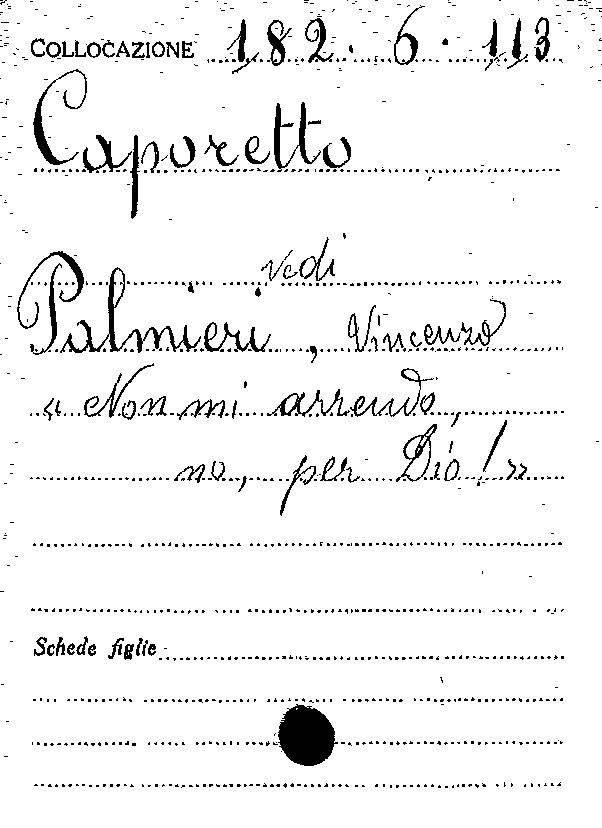 COLLOCAZIONE 182.6.113
Caporetto
vedi
Palmieri, Vincenzo
« Non mi arrendo,
no, per Dio! »
Schede figlie